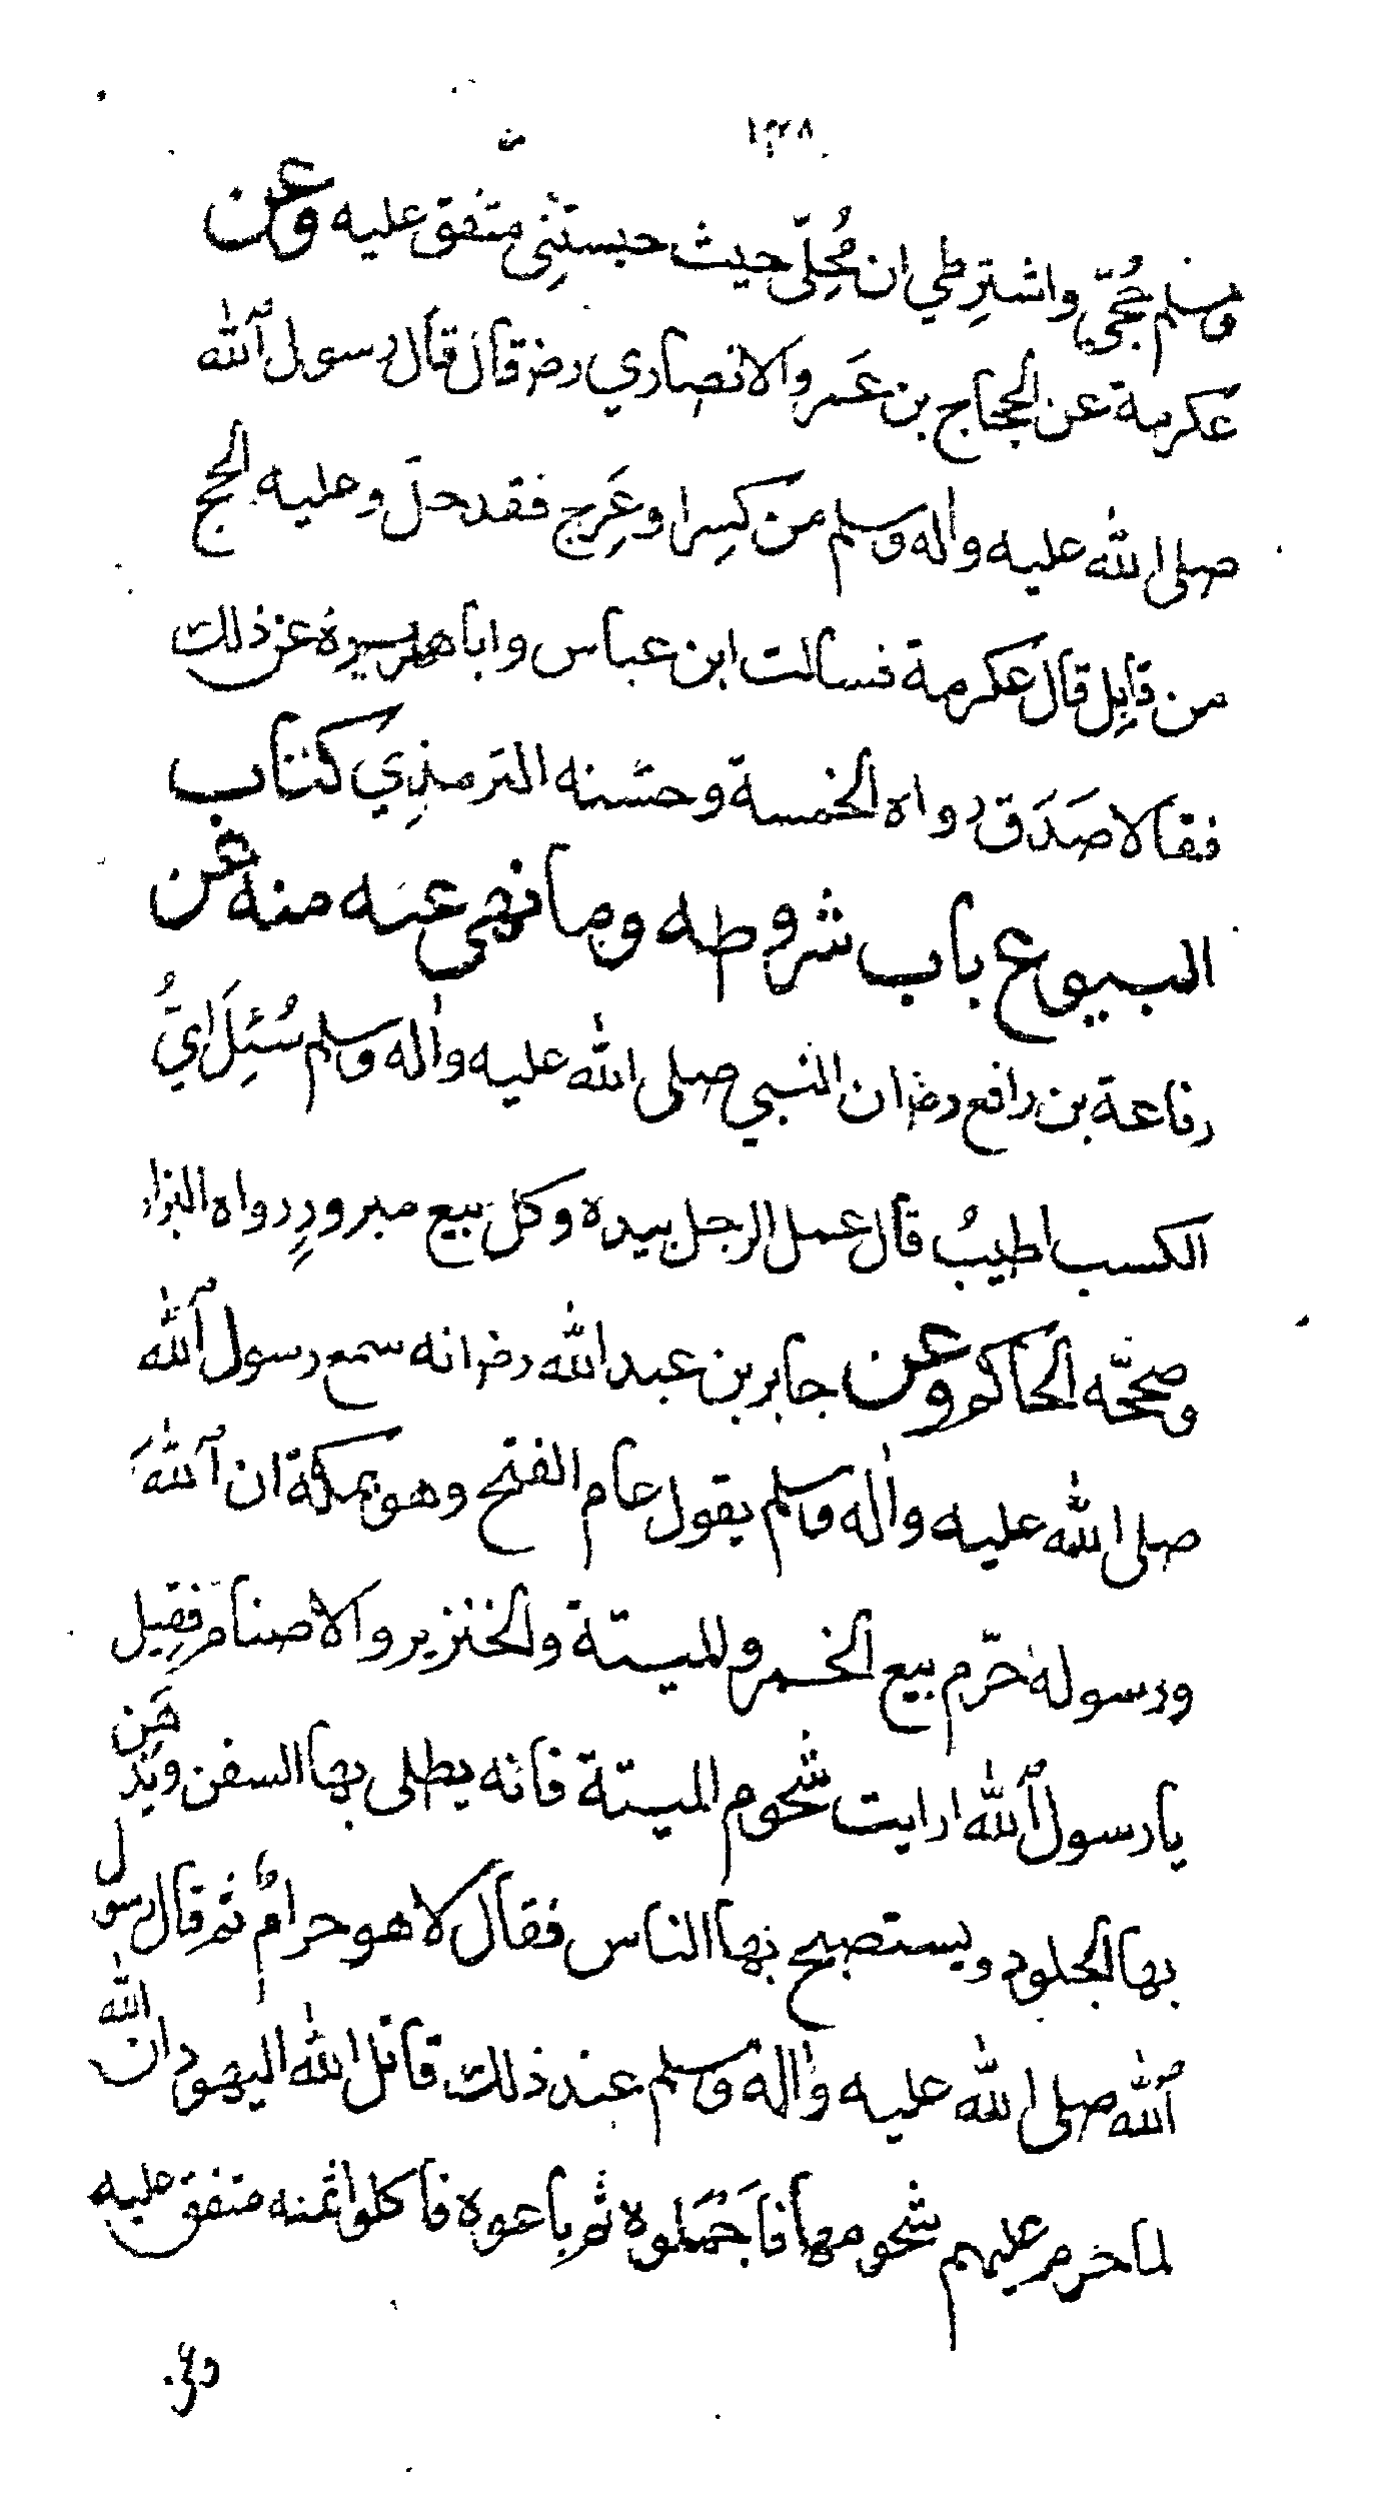 ١٣٨
وسلم حُجّي واشترِطي ان مُحِلّي حيث حبستنِي متفق عليه وعن
عكرمة عن الحجاج بن عَمرو الانصاري رضه قال قال رسول الله
صلى الله عليه واله وسلم من كسِر او عَرِج فقد حلّ وعليه الحج
من قابِل قال عكرمة فسالت ابن عباس وابا هريرة عن ذلك
فقالا صَدَق رواه الخمسة وحسّنه الترمذِي كتاب
البيوع باب شروطه وما نهي عنه منه عن
رفاعة بن رافع رضه ان النبي صلى الله عليه واله وسلم سُئِلَ ايُّ
الكسب اطيبُ قال عمل الرجل بيده وكل بيع مبرورٍ رواه البزار
وصححّه الحاكم وعن جابر بن عبد الله رضه انه سمع رسول الله
صلى الله عليه واله وسلم يقول عام الفتح وهو بمكة ان اللهَ
ورسوله حرّم بيع الخمر والميتة والخنزير والاصنام فقِيل
يا رسول الله ارايت شحوم الميتة فانه يطلى بها السفن ويدهَن
بها الجلود ويستصبح بها الناس فقال لا هو حرامٌ ثم قال رسول
الله صلى الله عليه واله وسلم عند ذلك قاتل الله اليهود ان الله
لما حرم عليهم شحومها فاجَمَلوه ثم باعوه فاكلوا ثمنه متفق عليه